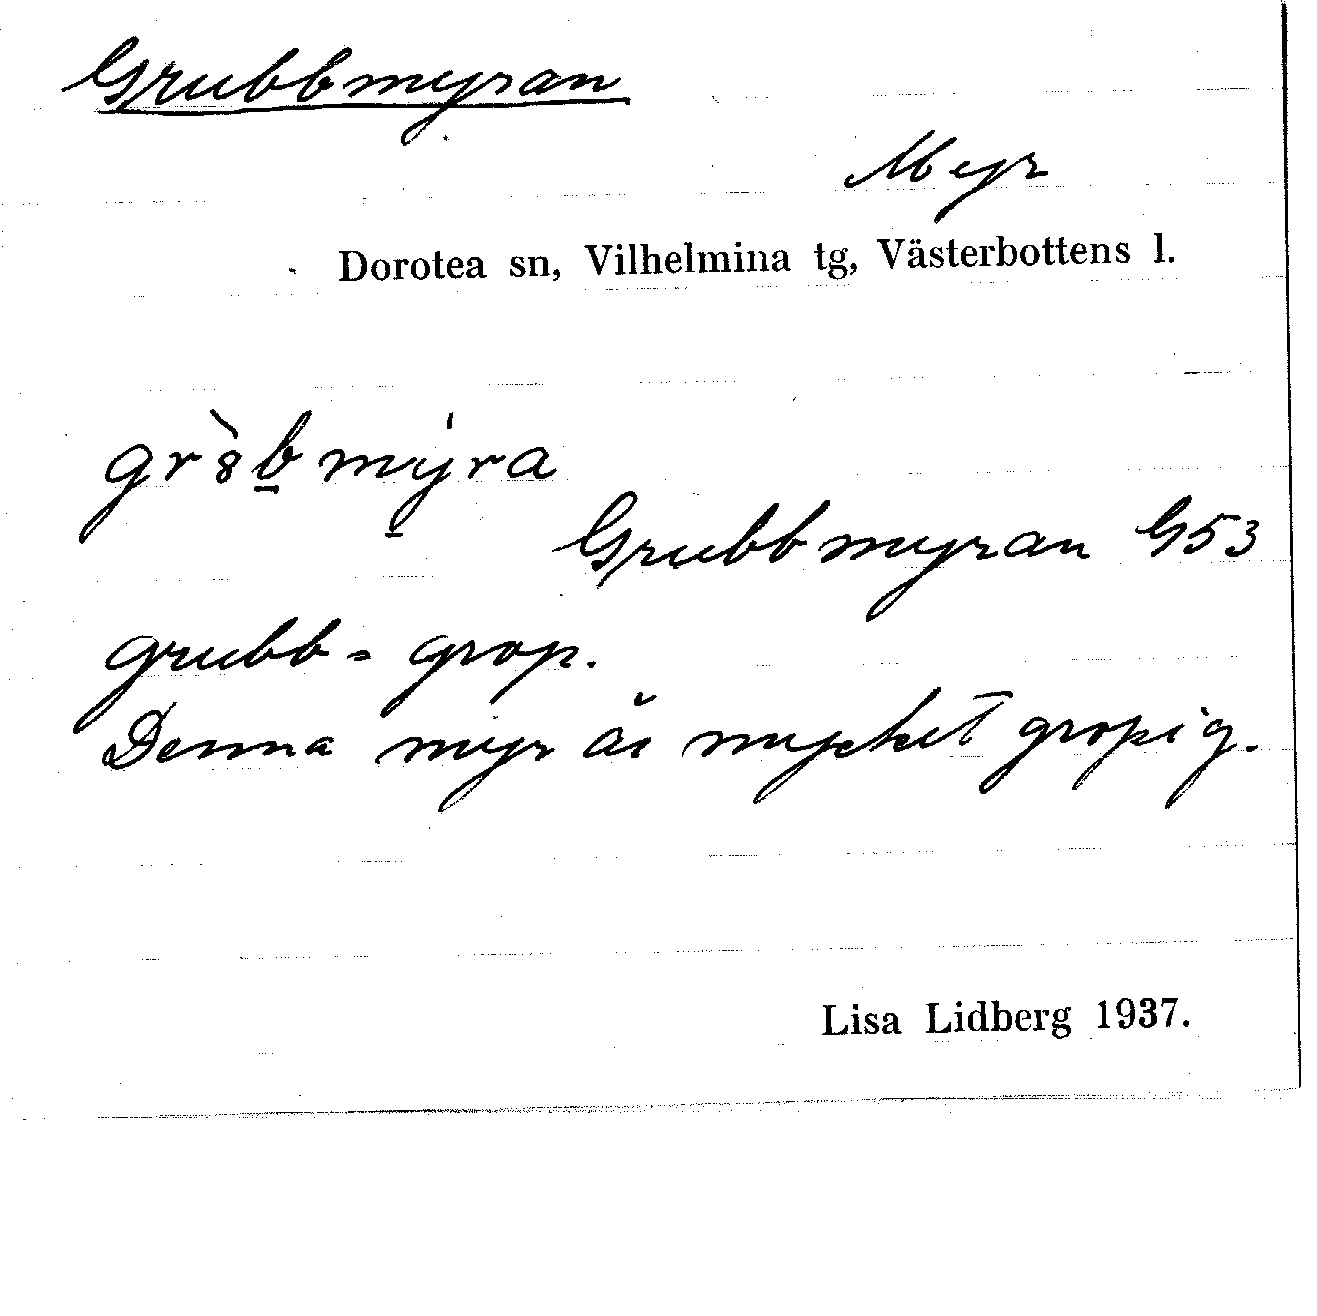 Grubbmyran
Myr
Dorotea sn, Vilhelmina tg, Västerbottens l.
gr8̀b̲mý̲ra
Grubbmyran G53
grubb = grop.
Denna myr är mycket gropig.
Lisa Lidberg 1937.